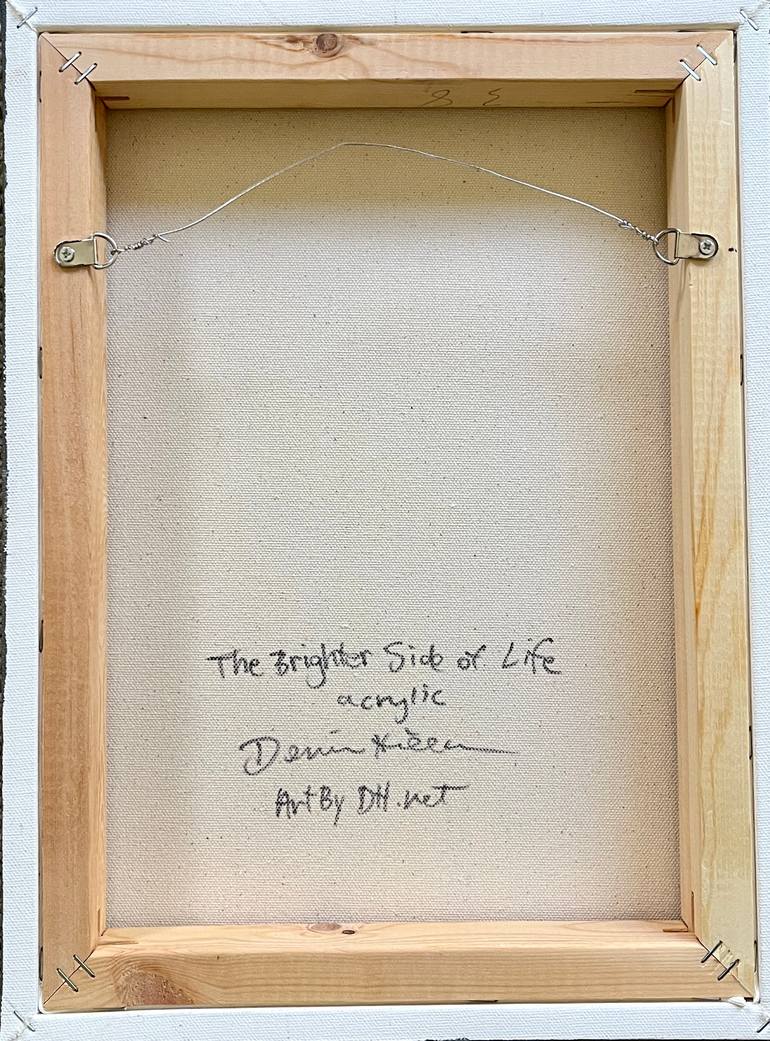 The Brighter Side of Life
acrylic
Denise
ArtByDH.net